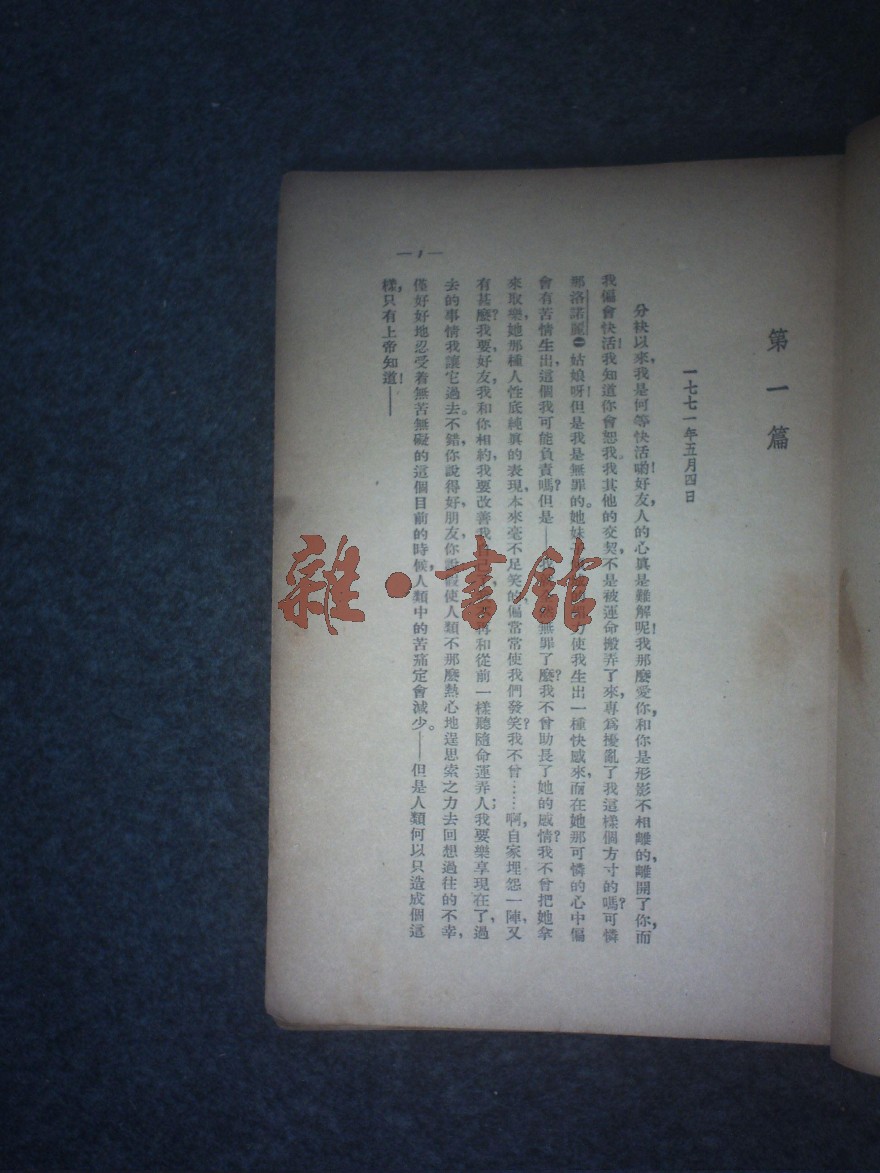 第一篇
一七七一年五月四日
分袂以來,我是何等快活喲!好友,人的心眞是難解呢!我那麼愛你,和你是形影不相離的,離開了你,而
我偏會快活!我知道你會恕我。我其他的交契,不是被運命搬弄了來,專爲擾亂了我這樣個方寸的嗎?可憐
那洛諾麗㊀姑娘呀!但是我是無罪的。她妹子使我生出一種快感來,而在她那可憐的心中偏
會有苦情生出,這個我可能負責嗎?但是——我無罪了麼?我不曾助長了她的感情?我不曾把她拿
來取樂,她那種人性底純眞的表現,本來毫不足笑的,偏常常使我們發笑?我不曾……啊,自家埋怨一陣,又
有甚麼?我要,好友,我和你相約,我要改善我自己,再和從前一樣聽隨命運弄人;我要樂享現在了,過
去的事情我讓它過去。不錯,你說得好,朋友,你說假使人類不那麼熱心地逞思索之力去回想過往的不幸,
僅好好地忍受着無苦無礙的這個目前的時候,人類中的苦痛定會減少。——但是人類何以只造成個這
樣,只有上帝知道!——
— 1 —
雜·書館